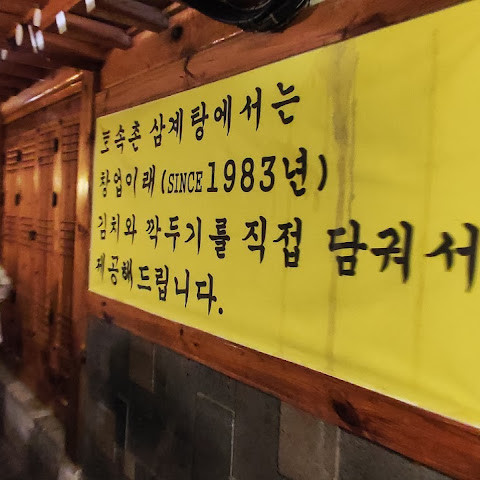 토속촌 삼계탕에서는
창업이래(SINCE 1983년)
김치와 깍두기를 직접 담궈서
제공해드립니다.